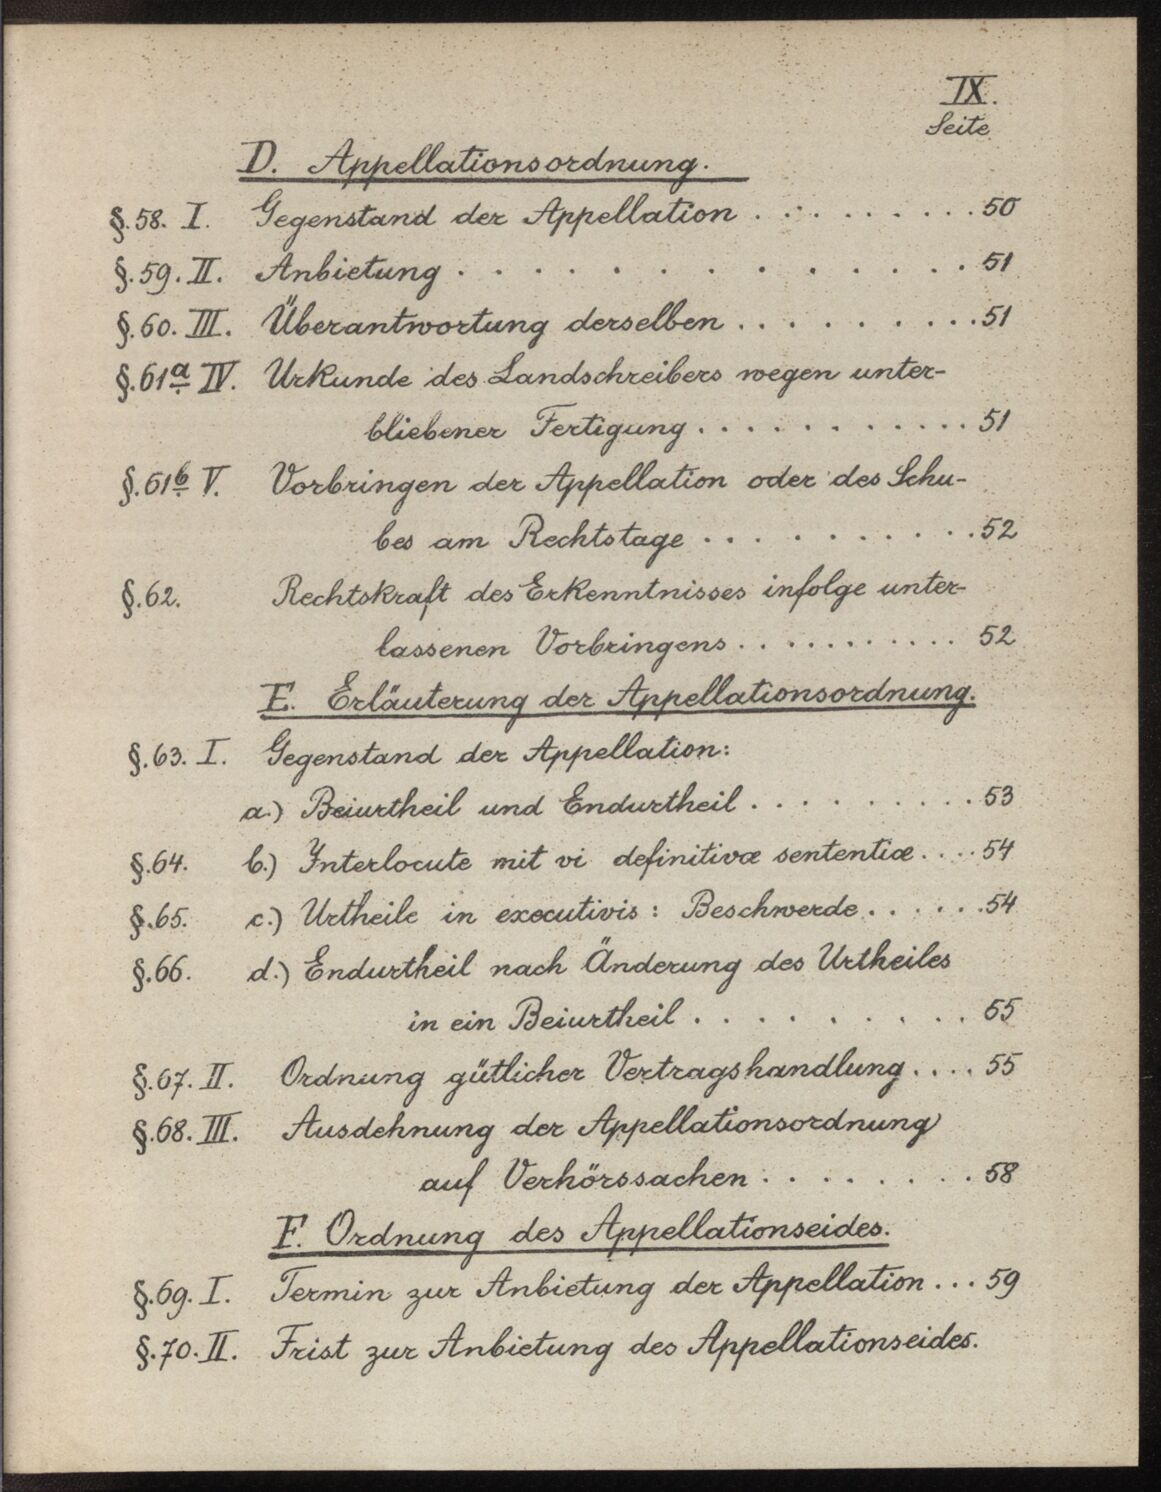 IX.
Seite
D. Appellationsordnung.
§.58. I. Gegenstand der Appellation . . . . . . . . . 50
§.59. II. Anbietung . . . . . . . . . . . . . . 51
§.60. III. Überantwortung derselben . . . . . . . . . 51
§.61a IV. Urkunde des Landschreibers wegen unter-
bliebener Fertigung . . . . . . . . . . . 51
§.61b V. Vorbringen der Appellation oder des Schu-
bes am Rechtstage . . . . . . . . . . . 52
§.62. Rechtskraft des Erkenntnisses infolge unter-
lassenen Vorbringens . . . . . . . . . . . 52
E. Erläuterung der Appellationsordnung.
§.63. I. Gegenstand der Appellation:
a.) Beiurtheil und Endurtheil . . . . . . . . . . 53
§.64. b.) Interlocute mit vi definitivæ sententiæ . . . . 54
§.65. c.) Urtheile in executivis: Beschwerde . . . . . . 54
§.66. d.) Endurtheil nach Änderung des Urtheiles
in ein Beiurtheil . . . . . . . . . . 55
§.67. II. Ordnung gütlicher Vertragshandlung . . . . 55
§.68. III. Ausdehnung der Appellationsordnung
auf Verhörssachen . . . . . . . . . 58
F. Ordnung des Appellationseides.
§.69. I. Termin zur Anbietung der Appellation . . . 59
§.70. II. Frist zur Anbietung des Appellationseides.